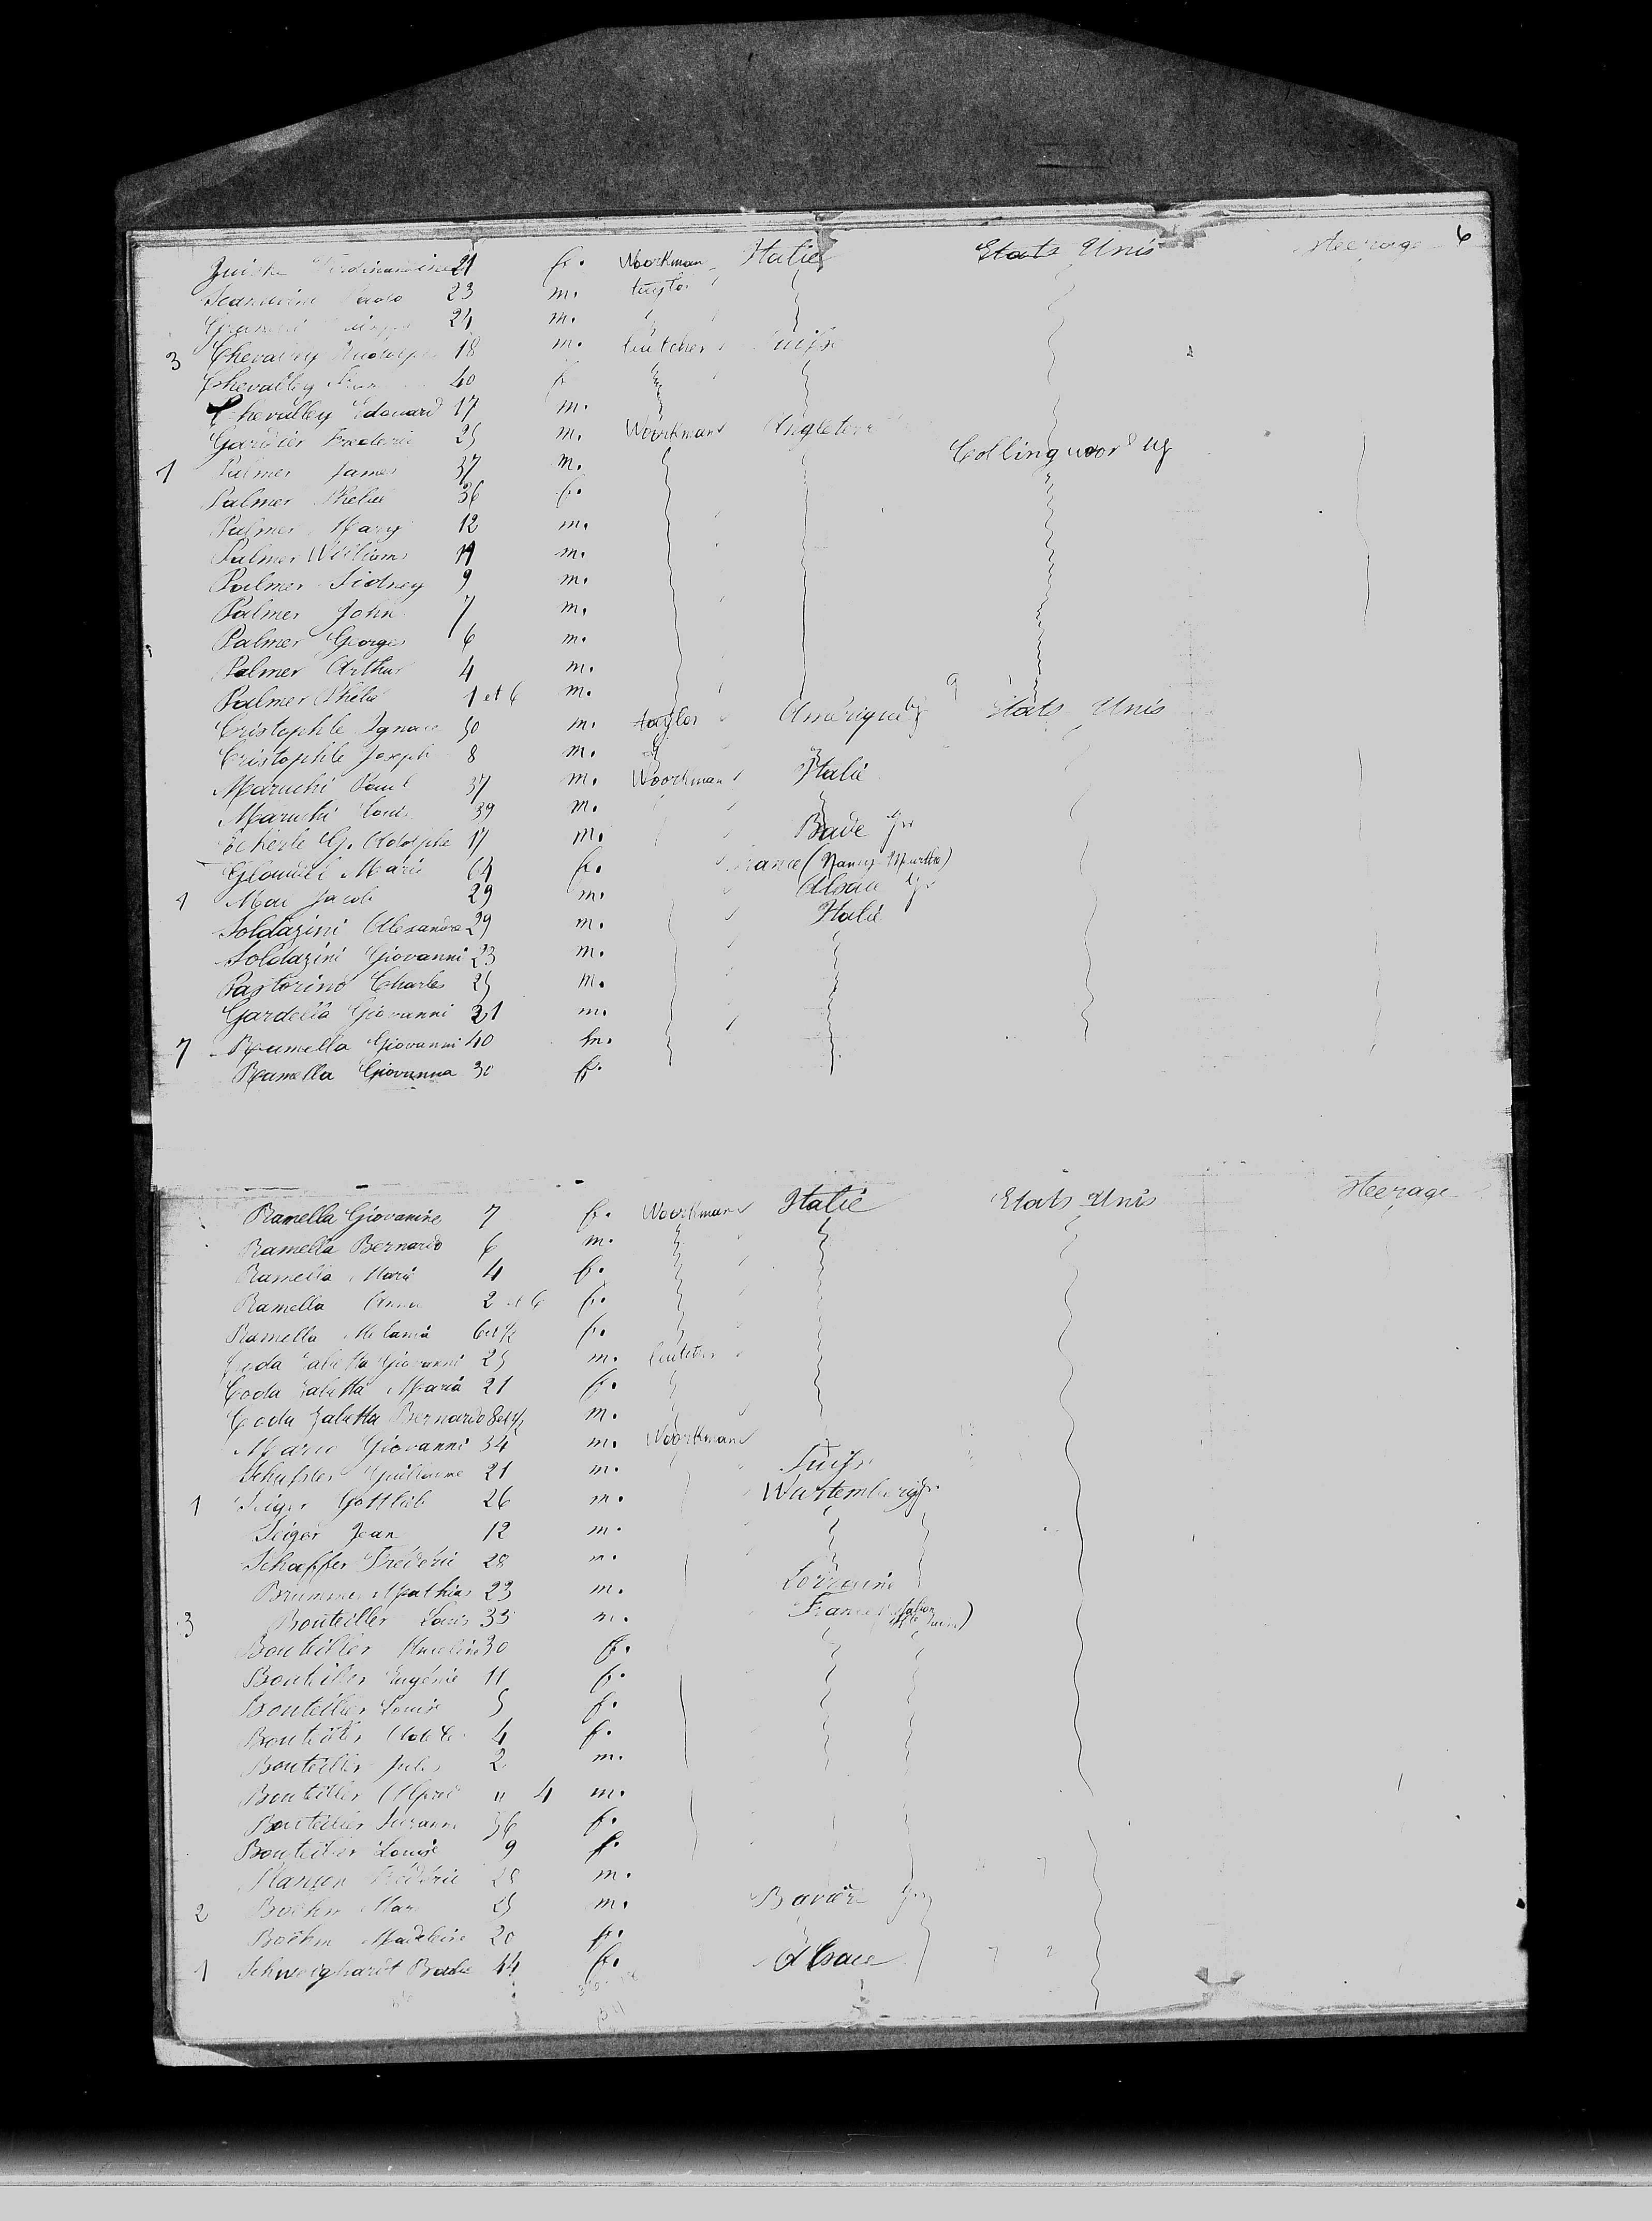 6
21 f. Woorkman Italie Etats Unis Steerage
23 m. taylor
24 m.
3 Chevalley 18 m. butcher Suisse
Chevalley 40 f.
Chevalley Edouard 17 m.
Frederic 25 m. Woorkman Angleterre
1 Palmer James 37 m. Collingwood
Palmer Phebé 36 f.
Palmer Mary 12 m.
Palmer William 11 m.
Palmer Sidney 9 m.
Palmer John 7 m.
Palmer George 6 m.
Palmer Arthur 4 m.
Palmer Phébé 1 et 6 m. 9
Cristophle Ignace 50 m. taylor Amérique Etats Unis
Cristophle Joseph 8 m.
Maruchi Paul 37 m. Woorkman Italie
Maruchi Louis 39 m.
Eckerle G. Adolphe 17 m. Bade Gr
Marie 64 f. France (Nancy Murthe)
1 Jacob 29 m. Alsace Gr
Soldazini Alexandre 29 m. Italie
Soldazini Giovanni 23 m.
Pastorino Charles 25 m.
Gardella Giovanni 21 m.
7 Ramella Giovanni 40 m.
Ramella Giovanna 30 f.
Ramella Giovanine 7 f. Woorkman Italie Etats Unis Steerage
Ramella Bernardo 6 m.
Ramella Maria 4 f.
Ramella Anna 2 et 6 f.
Ramella Melania 6 et ½ f.
Coda Zabetta Giovanni 25 m. butcher
Coda Zabetta Maria 21 f.
Coda Zabetta Bernardo 8 et ½ m.
Mario Giovanni 34 m. Woorkman
Guillaume 21 m. Suisse
1 Seiger Gottlieb 26 m. Wurtemberg Gr.
Seiger Jean 12 m.
Schaffer Fréderic 28 m.
Brummer Mathias 23 m. Lorraine
3 Bouteiller Louis 33 m. France
Bouteiller 30 f.
Bouteiller Eugénie 11 f.
Bouteiller Louise 5 f.
Bouteiller Adele 4 f.
Bouteiller Jules 2 m.
Bouteiller Alfred " 4 m.
Bouteiller Suzanne 36 f.
Bouteiller Louise 9 f.
Fréderic 28 m.
2 Boehm 25 m. Bavière Gr
Boehm Madeleine 20 f.
1 44 f. Alsace